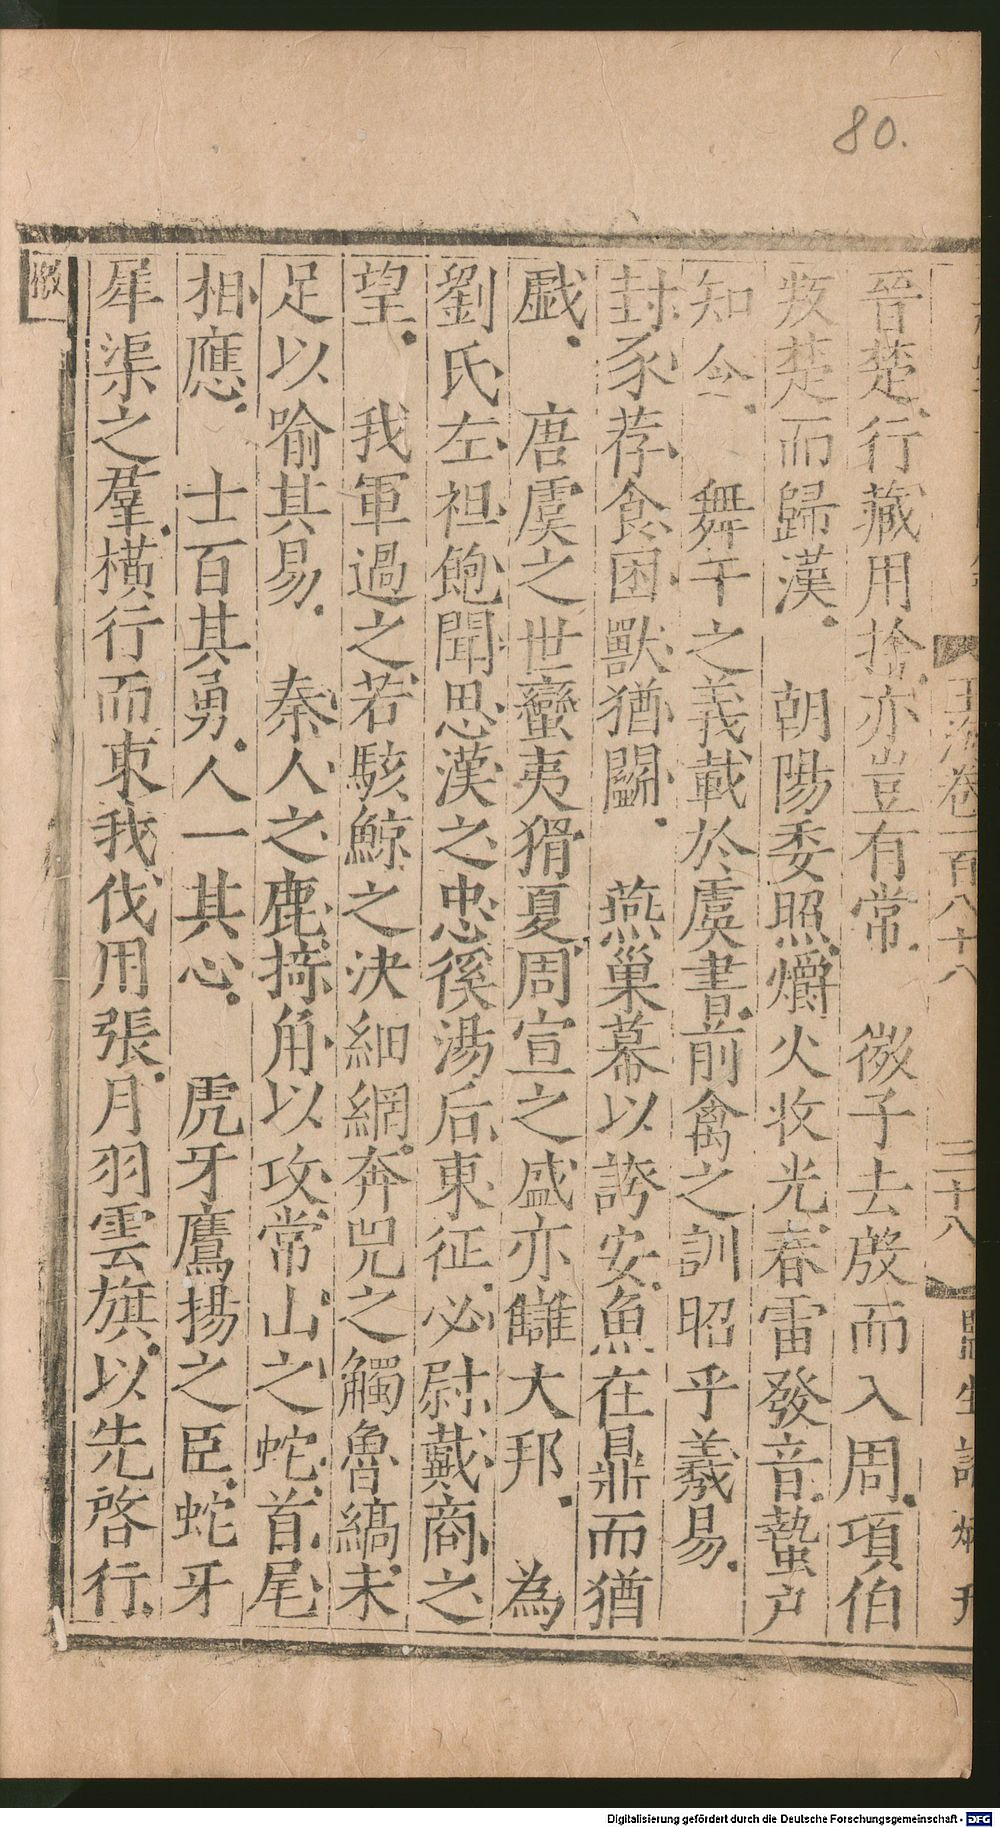 80.
玉海卷一百八十八
三十八
晉楚行藏用捨亦豈有常　微子去殷而入周項伯
叛楚而歸漢　朝陽委照爝火收光春雷發音蟄户
知令　舞干之義載於虞書前禽之訓昭乎羲易
封豕荐食困獸猶鬬　燕巢幕以誇安魚在鼎而猶
戯　唐虞之世蠻夷猾夏周宣之盛亦讎大邦　為
劉氏左袒飽聞思漢之忠徯湯后東征必尉戴商之
望　我軍過之若駭鯨之决細網奔兕之觸魯縞未
足以喻其易　秦人之鹿掎角以攻常山之蛇首尾
相應　士百其勇人一其心　虎牙鷹揚之臣蛇牙
犀渠之羣橫行而東我伐用張月羽雲旗以先啓行
檄
Digitalisierung gefördert durch die Deutsche Forschungsgemeinschaft - DFG